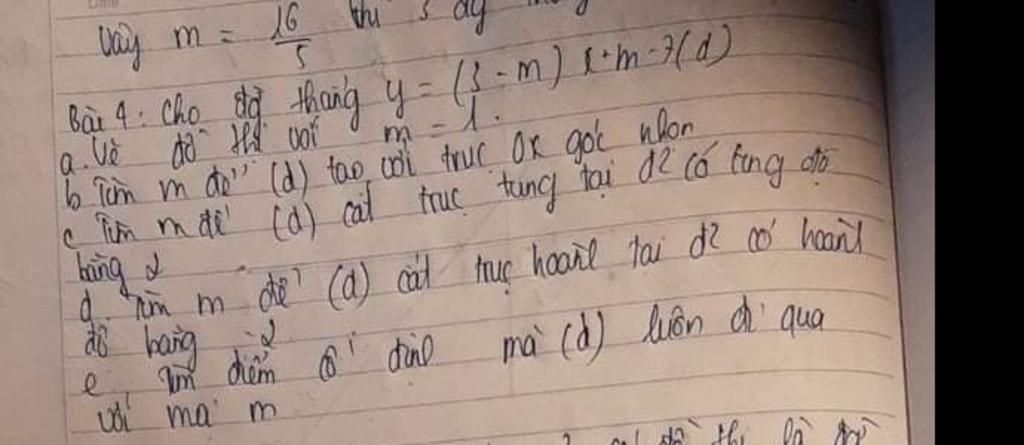 Vậy m = 16/5 thì 3 đg
Bài 4: Cho đg thẳng y = (3 - m) x + m - 7 (d)
a. Vẽ đồ thị với m = 1.
b Tìm m để (d) tạo với trục Ox góc nhọn
c Tìm m để (d) cắt trục tung tại đ2 có tung độ
bằng 2
d. Tìm m để (d) cắt trục hoành tại đ2 có hoành
độ bằng -2
e Tìm điểm cố định mà (d) luôn đi qua
với mọi m
đồ thị là